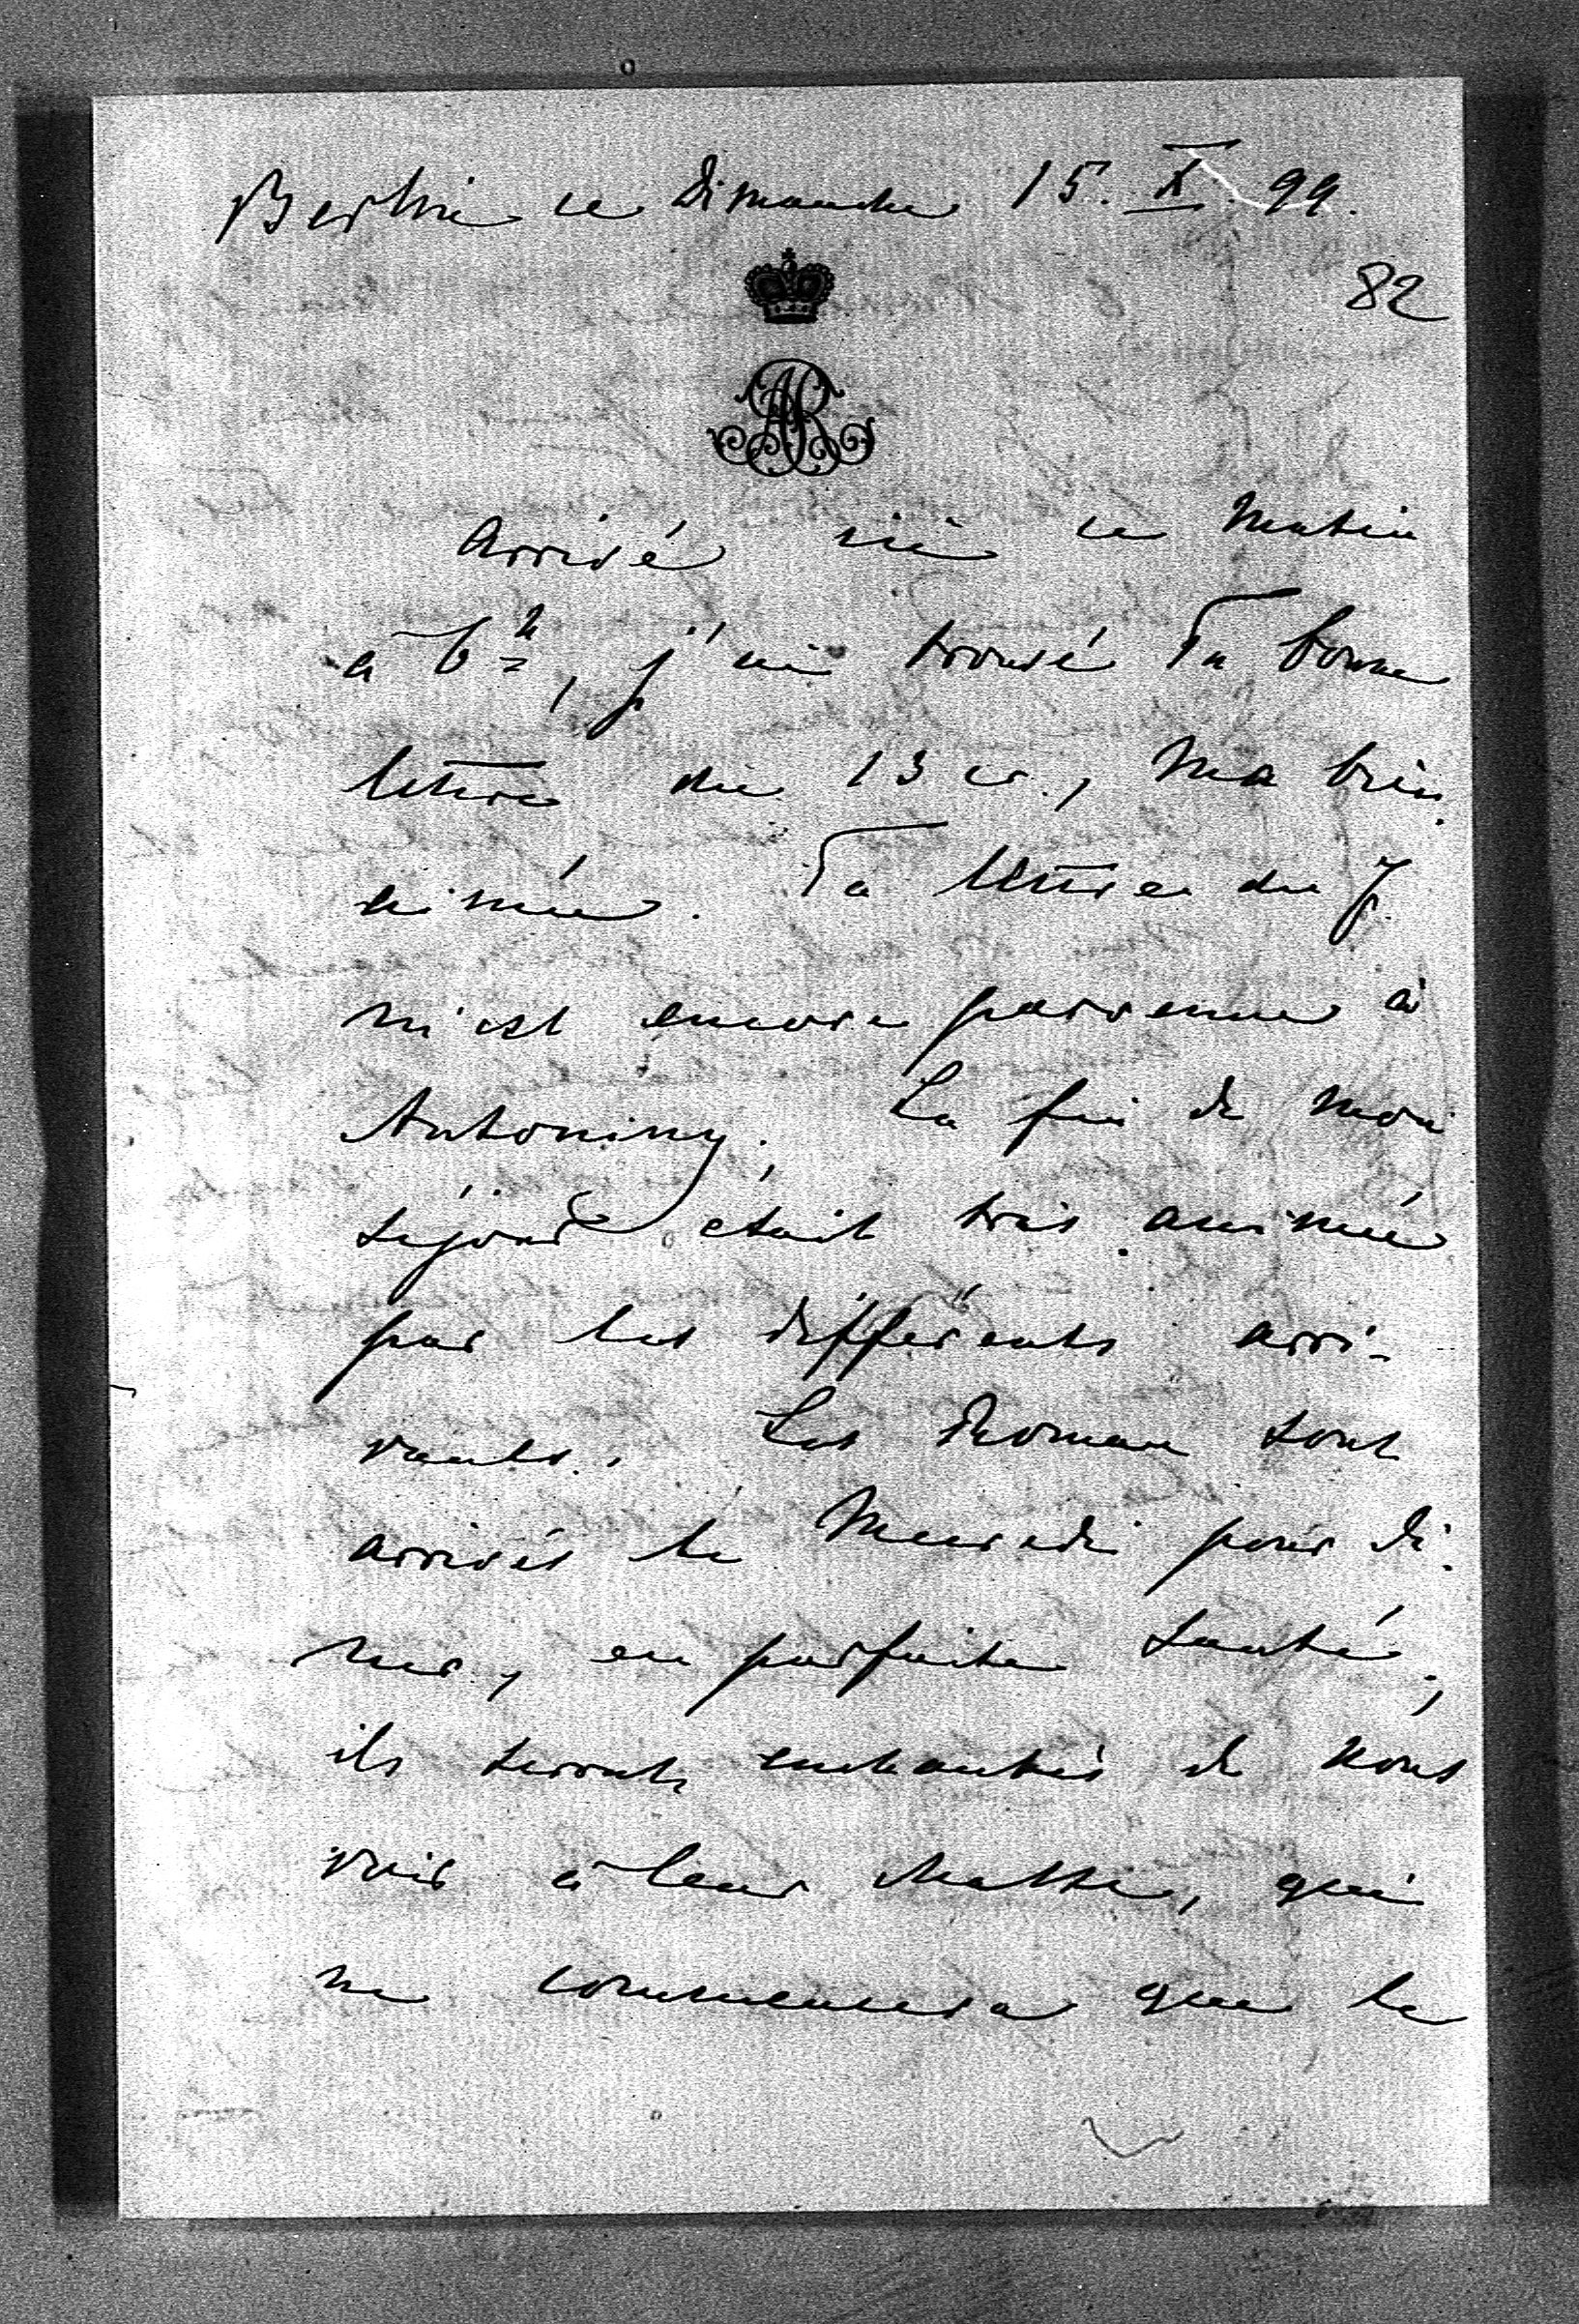 Berlin ce Dimanche 15. X. 99.
82
AR
Arrivé ici ce matin
à 6h, j'ai trouvé Ta bonne
lettre du 13 cr., Ma bien
aimée. Ta lettre du 7
m'est encore parvenue à
Antoniny. La fin de mon
séjour était très animée
par les différents arri-
vants. Les Roman sont
arrivés le Mercredi pour di-
ner, en parfaite santé,
ils seront enchantés de nous
voir à leur chasse, qui
ne commencera que le